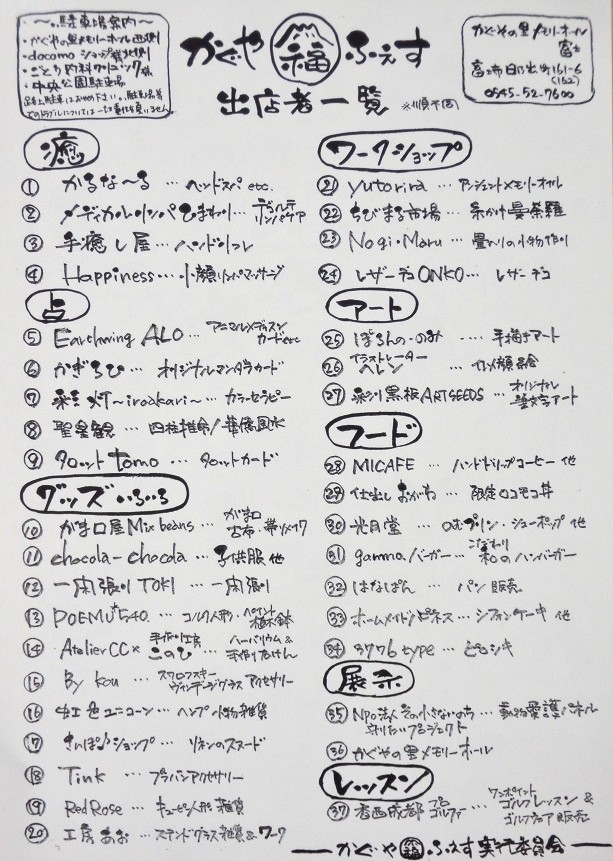 〜駐車場案内〜
・かぐやの里メモリーホール西側
・docomoショップ様北側
・ごとう内科クリニック様
・中央公園駐車場
かぐや福ふぇす
出店者一覧 ※順不同
かぐやの里メモリーホール
富士
富士市日乃出町161-6
(162)
0545-52-7600
癒
① かるな〜る … ヘッドスパ etc.
② メディカルリンパひまわり … デコルテリンパケア
③ 手癒し屋 … ハンドリフレ
④ Happiness … 小顔リンパマッサージ
占
⑤ Earthwing ALO … アニマルメディスンカードetc
⑥ かぎろひ … オリジナルマンダラカード
⑦ 彩灯〜iroakari〜 … カラーセラピー
⑧ 聖皇観 … 四柱推命/華僑風水
⑨ タロットtomo … タロットカード
グッズいろいろ
⑩ がま口屋Mix beans … がま口 古布・帯リメイク
⑪ chocola-chocola … 子供服 他
⑫ 一閑張り TOKI … 一閑張り
⑬ POEMU+540. … コルク人形・ペイント植木鉢
⑭ AtelierCC× 手作り工房このひ … ハーバリウム&手作り石けん
⑮ By kou … スワロフスキー ヴィンテージグラス アクセサリー
⑯ 虹色ユニコーン … ヘンプ小物雑貨
⑰ さんぽ♪ショップ … リネンのスヌード
⑱ Tink … プラバンアクセサリー
⑲ RedRose … キューピー人形 雑貨
⑳ 工房あお … ステンドグラス雑貨&ワーク
ワークショップ
㉑ yutorira … アンジェントメモリーオイル
㉒ ちびまる市場 … 糸かけ曼荼羅
㉓ Nogi・Maru … 畳へりの小物作り
㉔ レザーデコONKO … レザーデコ
アート
㉕ ぽろんの・のみ … 手描きアート
㉖ イラストレーター ヘレン … 似顔絵
㉗ 彩り黒板ARTSEEDS … オリジナル筆文字アート
フード
㉘ MICAFE … ハンドドリップコーヒー 他
㉙ 仕出し おがわ … 限定ロコモコ丼
㉚ 光月堂 … のむプリン・シューポップ 他
㉛ gamma.バーガー … こだわり和のハンバーガー
㉜ はなぱん … パン 販売
㉝ ホームメイドハピネス … シフォンケーキ 他
㉞ 3776 type … ピロシキ
展示
㉟ NPO法人 その小さないのち守りたいプロジェクト … 動物愛護パネル
㊱ かぐやの里メモリーホール
レッスン
㊲ 香西成都 プロゴルファー … ワンポイントゴルフレッスン&ゴルフウェア販売
—かぐや福ふぇす実行委員会—